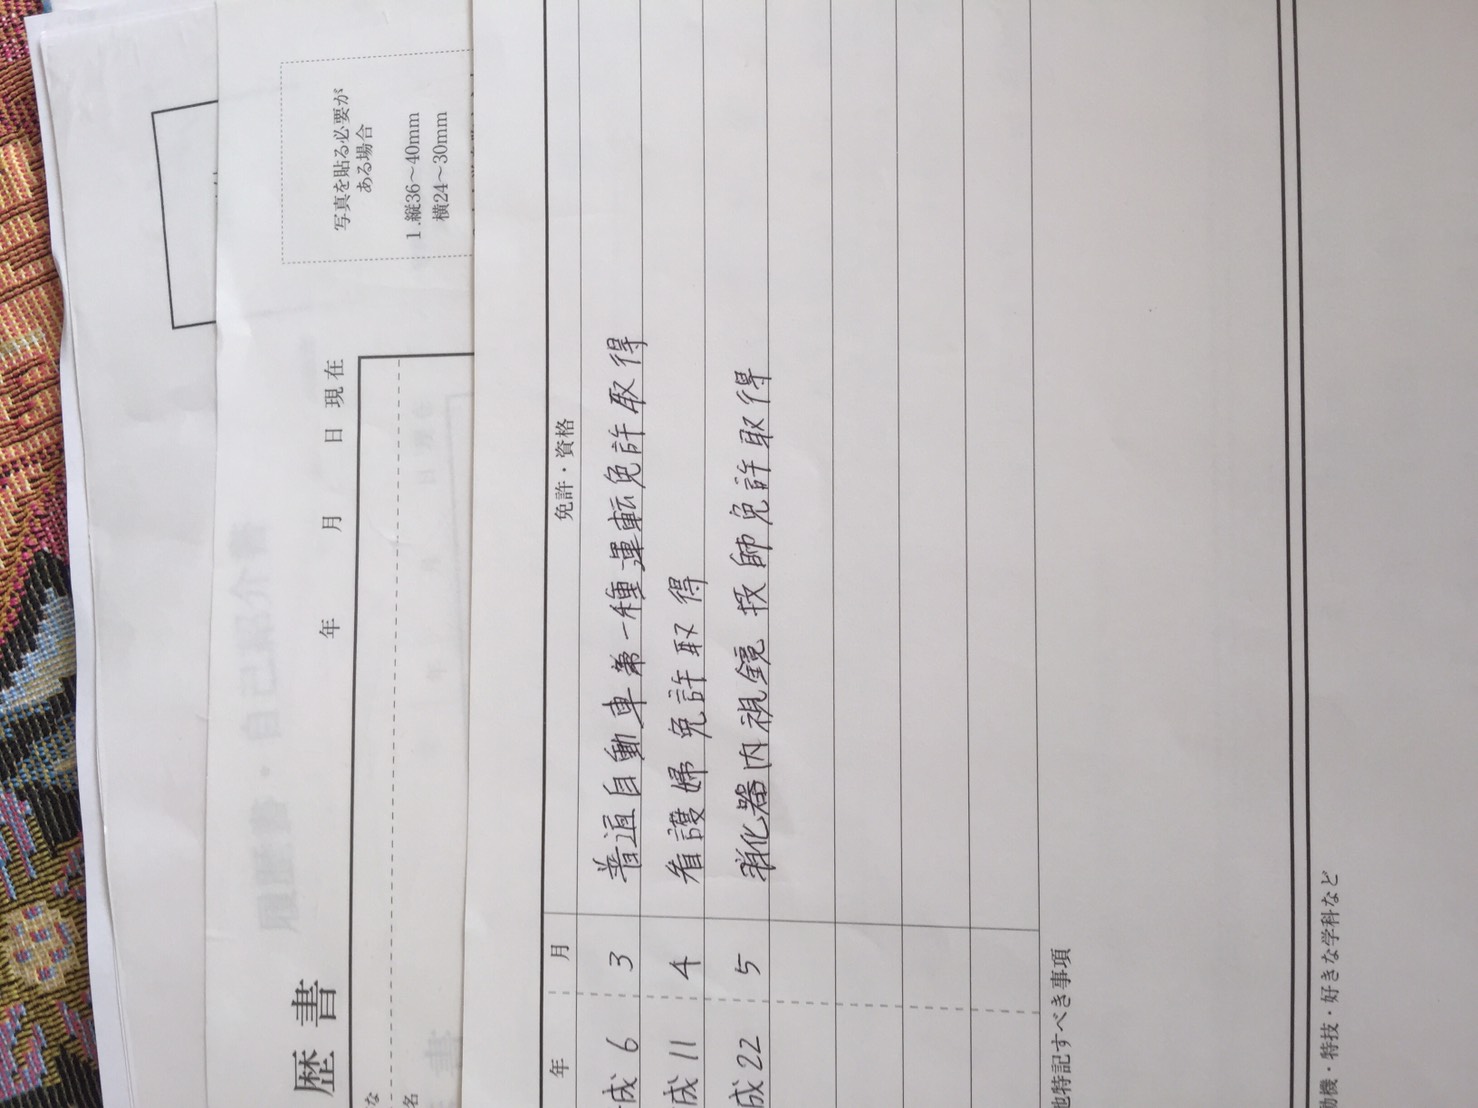 歴書
年 月 日 現在
写真を貼る必要が
ある場合
1.縦36〜40mm
横24〜30mm
な
名
年 月 免許・資格
成 6 3 普通自動車第一種運転免許取得
成 11 4 看護婦免許取得
成 22 5 消化器内視鏡技師免許取得
他特記すべき事項
動機・特技・好きな学科など